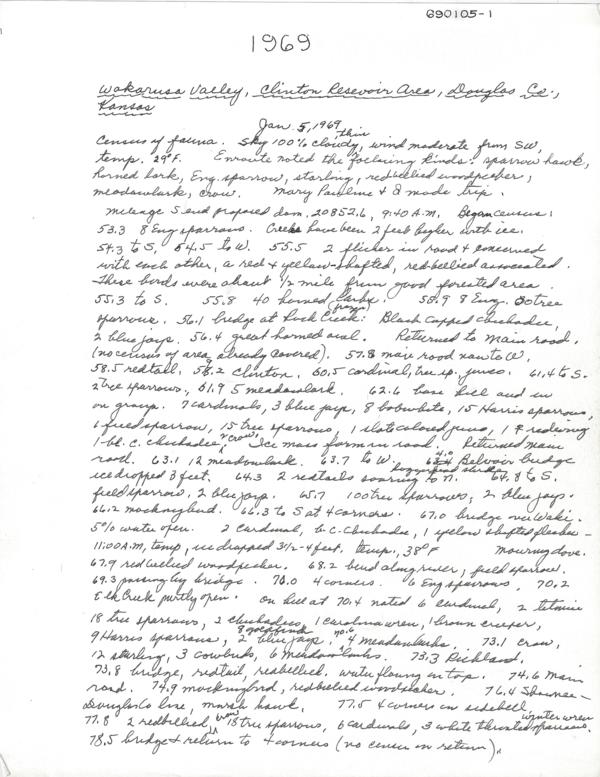 690105-1
1969
Wakarusa Valley, Clinton Resevoir Area, Douglas Co.,
Kansas
Jan. 5, 1969
Census of fauna. Sky 100% thin cloudy, wind moderate from SW,
temp. 29°F. Enroute noted the following kinds: sparrow hawk,
horned lark, Eng. sparrow, starling, redbellied woodpecker,
meadowlark, crow. Mary Pauline & I made trip.
Mileage S end proposed dam, 20852.6, 9:40 A.M. Began census:
53.3 8 Eng sparrows. Creeks have been 2 feet higher with ice.
54.3 to S, 54.5 to W. 55.5 2 flicker in road & concerned
with each other, a red & yellow-shafted, redbellied associated.
These birds were about 1/2 mile from good forested area.
55.3 to S. 55.8 40 horned larks. 58.9 8 Eng. 20 tree
sparrows. 56.1 bridge at Rock Creek: (frozen) Black capped chickadee,
2 blue jays. 56.4 great horned owl. Returned to main road.
(no census of area already covered). 57.8 main road now to W.
58.5 redtail, 58.2 Clinton. 60.5 cardinal, tree sp. junco. 61.4 to S.
2 tree sparrows, 61.9 5 meadowlark. 62.6 base hill and in
on group. 7 cardinals, 3 blue jays, 8 bobwhite, 15 Harris sparrows,
6 field sparrow, 15 tree sparrows, 1 slate colored junco, 1 ♀ redwing
1 bl. c. chickadee, crow. Ice mass form in road. Returned main
road. 63.1 12 meadowlark. 63.7 to W. Belvoir bridge
ice dropped 3 feet. 64.3 2 redtails soaring to N. 64.8 to S.
field sparrow, 2 blue jays. 65.7 100 tree sparrows, 2 blue jays.
66.2 mockingbird. 66.3 to S at 4 corners. 67.0 bridge
5% water open. 2 cardinal, b.c. chickadee, 1 yellow shafted
11:00 A.M., temp, ice dropped 3 1/2-4 feet. temp., 38°F mourning dove.
67.9 redbellied woodpecker. 68.2 bend along river, field sparrow.
69.3 passing by bridge. 70.0 4 corners. 6 Eng sparrows. 70.2
Elk Creek partly open. On hill at 70.4 noted 6 cardinal, 2 titmice
18 tree sparrows, 2 chickadees, 1 Carolina wren, 1 brown creeper,
9 Harris sparrows, 8 goldfinch 2 blue jays, 4 meadowlarks. 73.1 crow,
12 starling, 3 cowbirds, 6 meadowlarks. 73.3 Richland.
73.8 bridge, redtail, redbellied. water flowing on top. 74.6 main
road. 74.9 mockingbird, redbellied woodpecker. 76.4 Shawnee-
Douglas Co line, marsh hawk. 77.5 4 corners on
77.8 2 redbellied, crow 18 tree sparrows, 6 cardinals, 3 white throated sparrows. winter wren
78.5 bridge & return to 4 corners (no census on return).